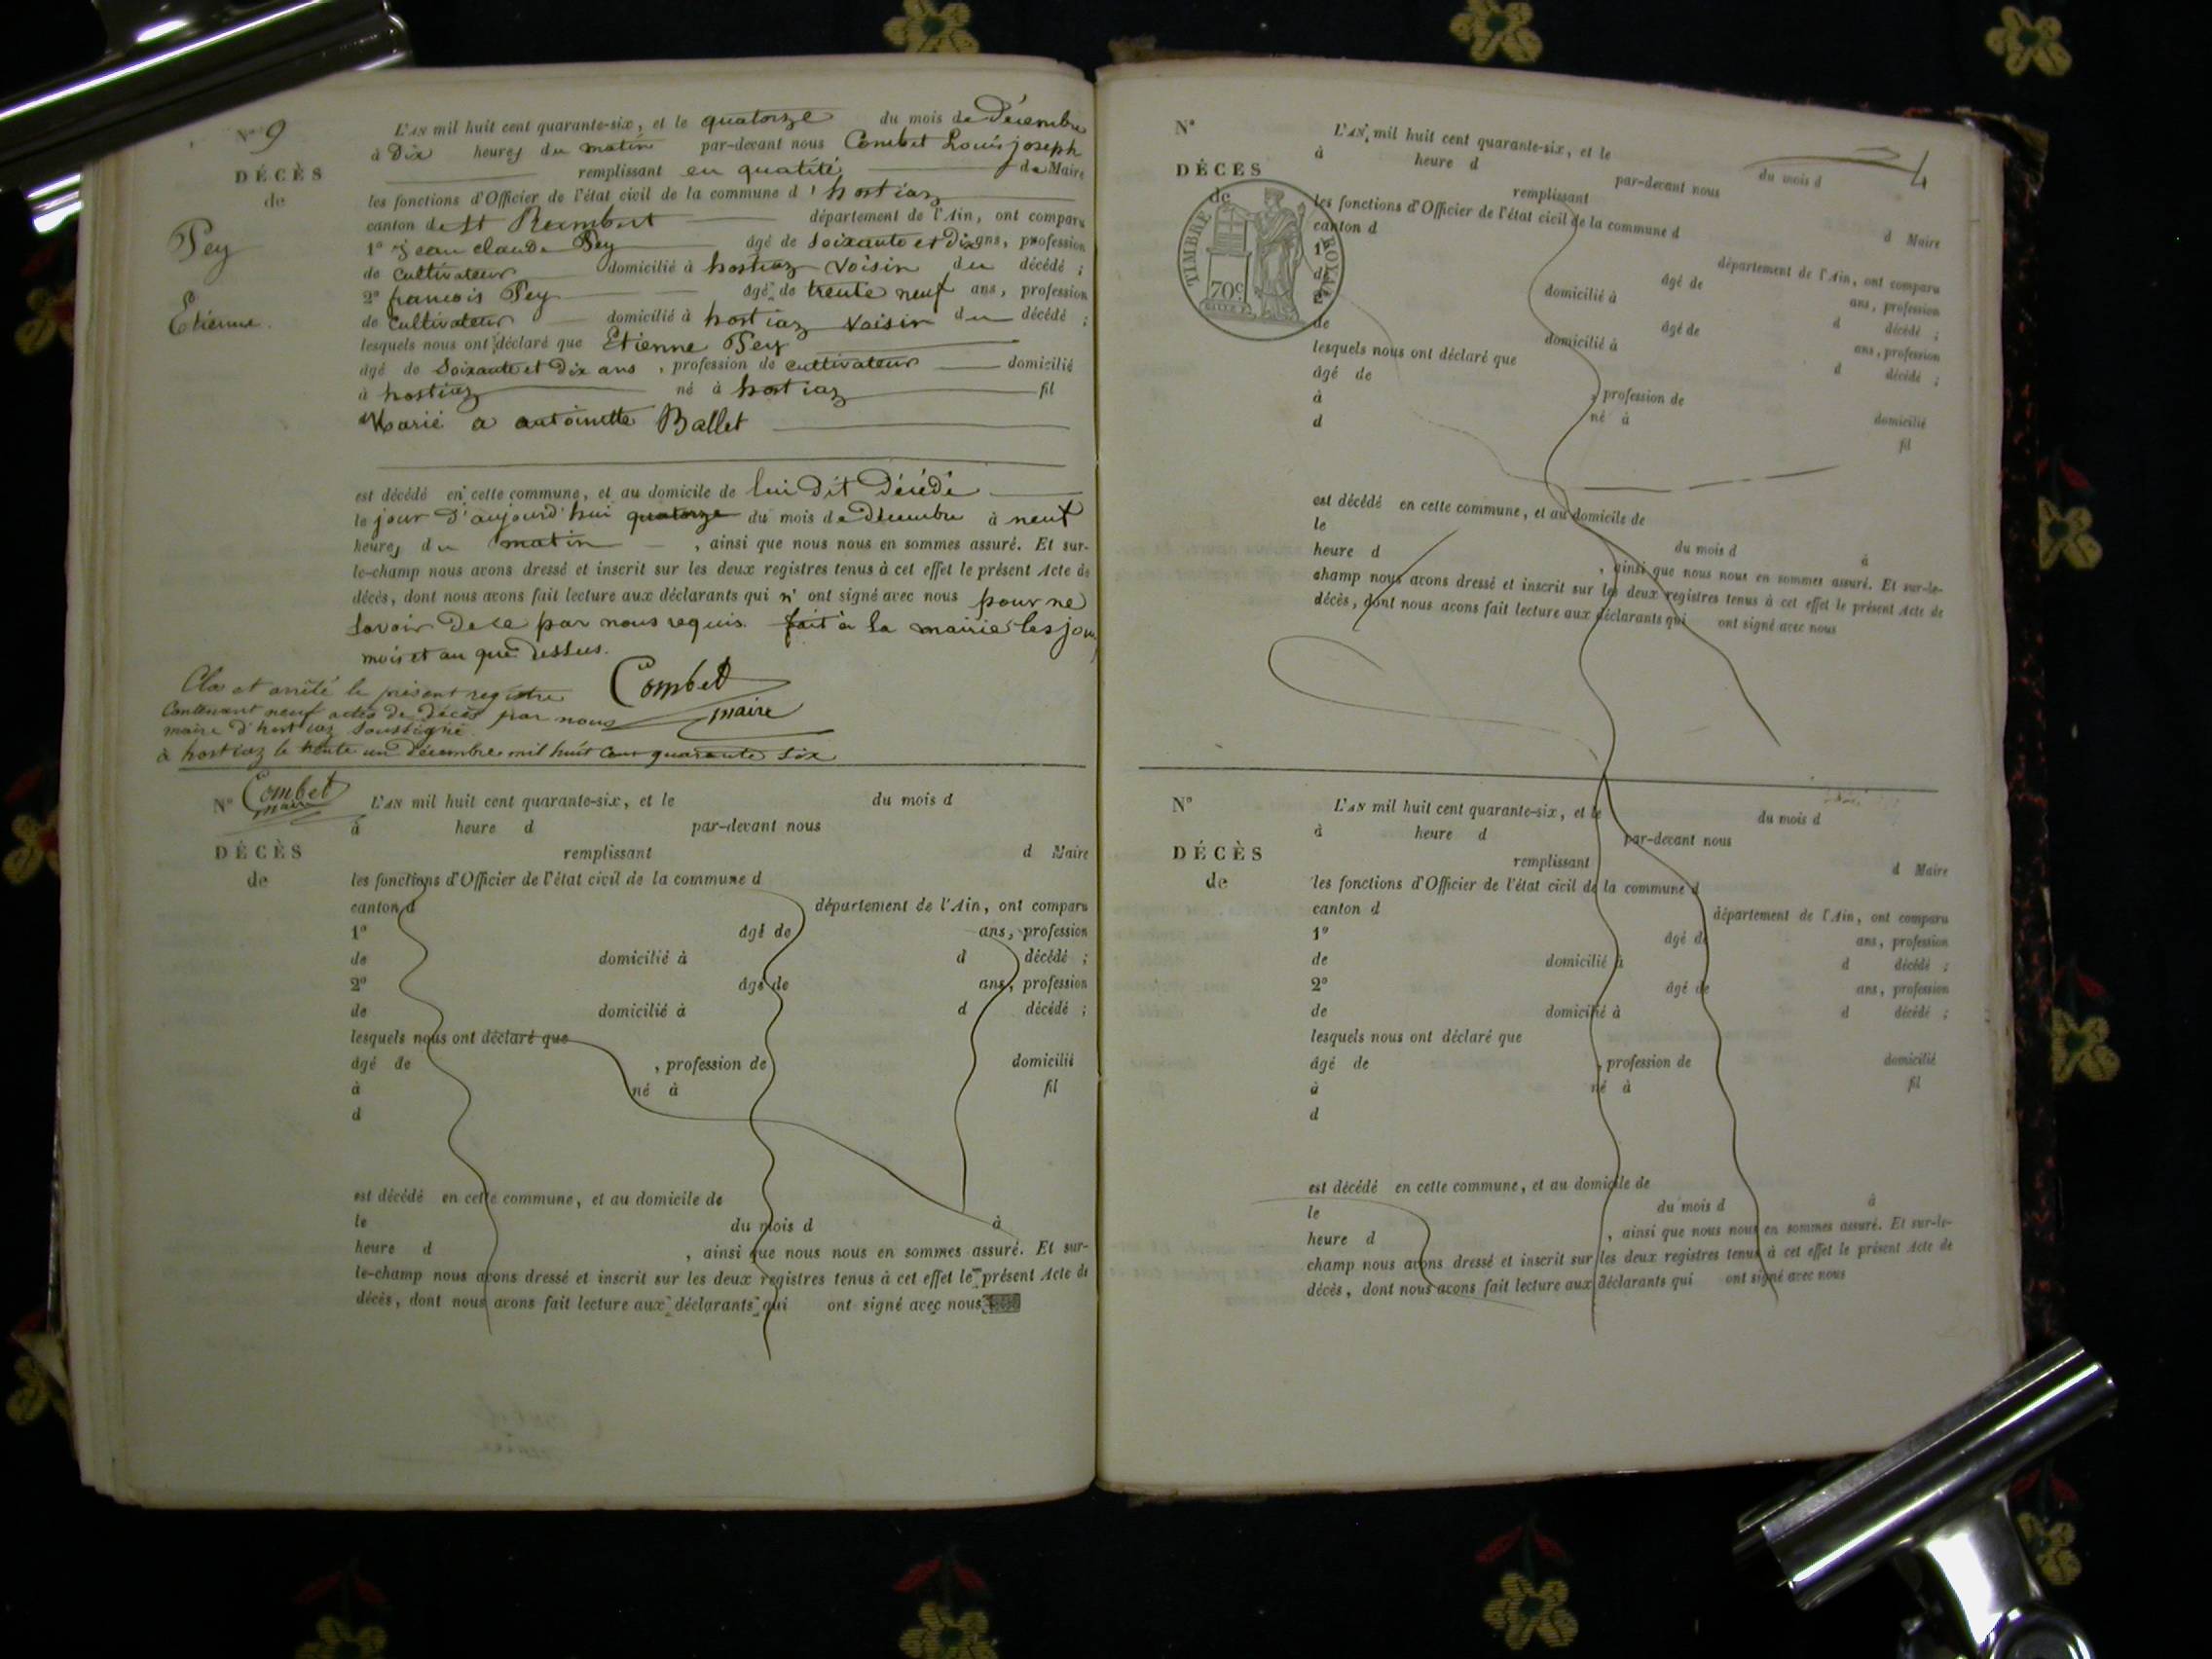 N° 9
DÉCÈS
de
Pey
Etienne.
L'AN mil huit cent quarante-six, et le quatorze du mois de Décembre
à Dix heures du matin par-devant nous Combet Louis joseph
remplissant en qualité de Maire
les fonctions d'Officier de l'état civil de la commune d'hostiaz
canton de St Rambert département de l'Ain, ont comparu
1° Jean claude Pey âgé de soixante et dix ans, profession
de cultivateur domicilié à hostiaz voisin du décédé ;
2° francois Pey âgé de trente neuf ans, profession
de cultivateur domicilié à hostiaz voisin du décédé ;
lesquels nous ont déclaré que Etienne Pey
âgé de Soixante et Dix ans, profession de cultivateur domicilié
à hostiaz né à hostiaz fil
Marié a antoinette Ballet
est décédé en cette commune, et au domicile de lui Dit Décédé
le jour d'aujourd'hui quatorze du mois de Décembre à neuf
heures du matin, ainsi que nous nous en sommes assuré. Et sur-
le-champ nous avons dressé et inscrit sur les deux registres tenus à cet effet le présent Acte de
décès, dont nous avons fait lecture aux déclarants qui n' ont signé avec nous pour ne
savoir De ce par nous requis. fait à la mairie les jour
mois et an que Dessus.
Combet
maire
Clos et arrêté le présent registre
Contenant neuf actes de décès par nous
maire d'hostiaz soussigné.
à hostiaz le trente un Décembre mil huit cent quarante six
Combet
maire
N°
DÉCÈS
de
L'AN mil huit cent quarante-six, et le du mois d
à heure d par-devant nous
remplissant d Maire
les fonctions d'Officier de l'état civil de la commune d
canton d département de l'Ain, ont comparu
1° âgé de ans, profession
de domicilié à d décédé ;
2° âgé de ans, profession
de domicilié à d décédé ;
lesquels nous ont déclaré que
âgé de , profession de domicilié
à né à fil
d
est décédé en cette commune, et au domicile de
le du mois d à
heure d , ainsi que nous nous en sommes assuré. Et sur-
le-champ nous avons dressé et inscrit sur les deux registres tenus à cet effet le présent Acte de
décès, dont nous avons fait lecture aux déclarants qui ont signé avec nous
N°
DÉCÈS
de
TIMBRE ROYAL
70c
L'AN mil huit cent quarante-six, et le du mois d
à heure d par-devant nous
remplissant d Maire
les fonctions d'Officier de l'état civil de la commune d
canton d département de l'Ain, ont comparu
1° âgé de ans, profession
de domicilié à d décédé ;
2° âgé de ans, profession
de domicilié à d décédé ;
lesquels nous ont déclaré que
âgé de , profession de domicilié
à né à fil
d
est décédé en cette commune, et au domicile de
le du mois d à
heure d , ainsi que nous nous en sommes assuré. Et sur-le-
champ nous avons dressé et inscrit sur les deux registres tenus à cet effet le présent Acte de
décès, dont nous avons fait lecture aux déclarants qui ont signé avec nous
N°
DÉCÈS
de
L'AN mil huit cent quarante-six, et le du mois d
à heure d par-devant nous
remplissant d Maire
les fonctions d'Officier de l'état civil de la commune d
canton d département de l'Ain, ont comparu
1° âgé de ans, profession
de domicilié à d décédé ;
2° âgé de ans, profession
de domicilié à d décédé ;
lesquels nous ont déclaré que
âgé de , profession de domicilié
à né à fil
d
est décédé en cette commune, et au domicile de
le du mois d à
heure d , ainsi que nous nous en sommes assuré. Et sur-le-
champ nous avons dressé et inscrit sur les deux registres tenus à cet effet le présent Acte de
décès, dont nous avons fait lecture aux déclarants qui ont signé avec nous